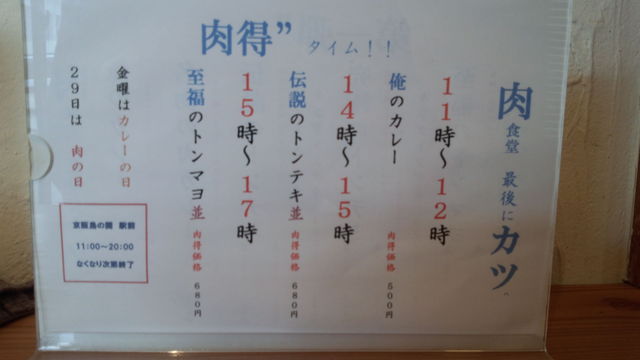 肉得”タイム！！
肉食堂 最後にカツ
11時～12時
俺のカレー 肉得価格 500円
14時～15時
伝説のトンテキ並 肉得価格 680円
15時～17時
至福のトンマヨ並 肉得価格 680円
金曜はカレーの日
29日は 肉の日
京阪島の関 駅前
11:00～20:00
なくなり次第終了